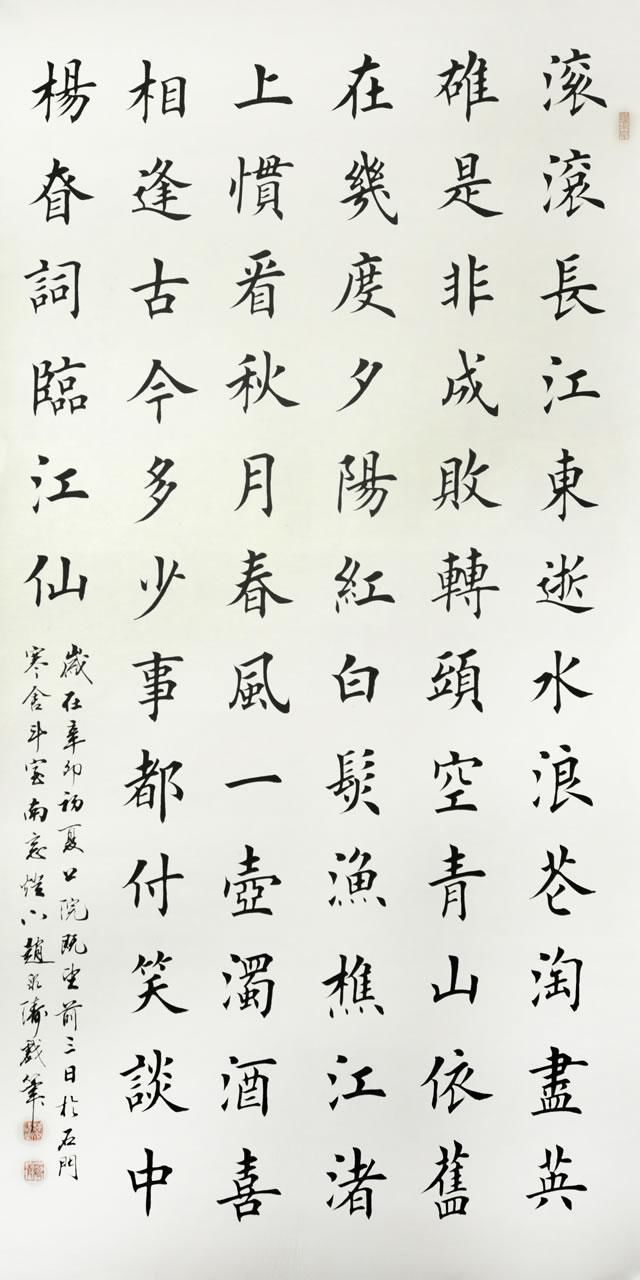 滚滾長江東逝水浪花淘盡英
雄是非成敗轉頭空青山依舊
在幾度夕陽紅白髮漁樵江渚
上慣看秋月春風一壺濁酒喜
相逢古今多少事都付笑談中
楊眘詞臨江仙
歲在辛卯初夏既望前三日於石門
寒舍斗室南窓燈下趙戲筆